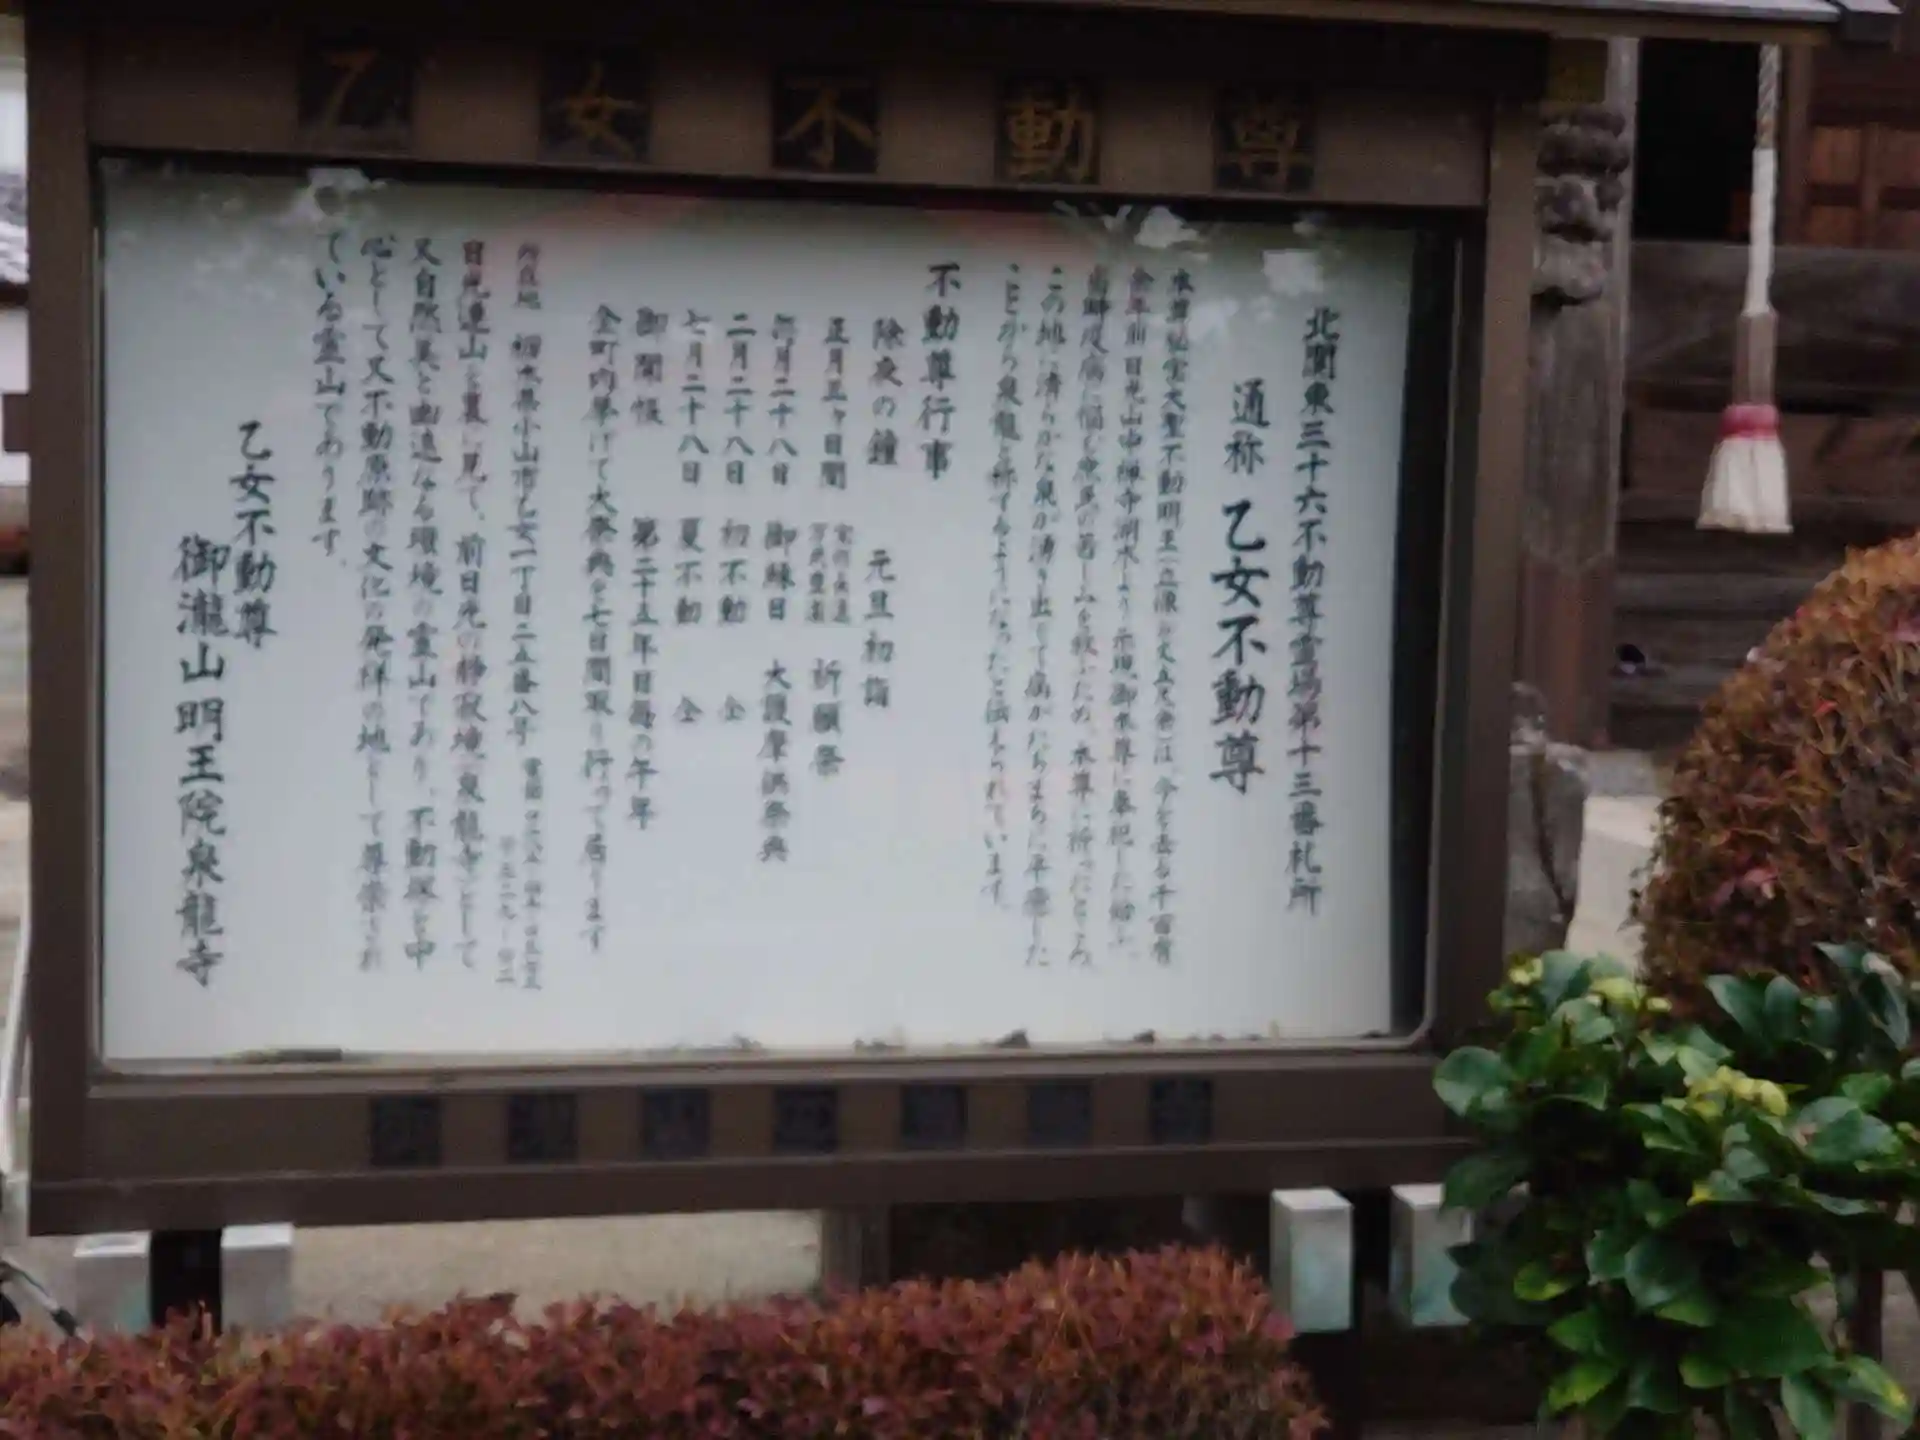 乙女不動尊
北関東三十六不動尊霊場第十三番札所
通称 乙女不動尊
本尊秘宝大聖不動明王は、今を去る千百有
余年前日光山中禅寺湖水より示現、御本尊に奉祀した始め、
当郷疫病に悩む庶民の苦しみを救うため、本尊に祈ったところ、
この地に清らかな泉が湧き出して病がたちまちに平癒した
ことから泉龍と称するようになったと伝えられています。
不動尊行事
除夜の鐘 元旦初詣
正月三ヶ日間 祈願祭
毎月二十八日 御縁日 大護摩供祭典
二月二十八日 初不動 仝
七月二十八日 夏不動 仝
御開帳 第二十五年目毎の午年
全町内挙げて大祭典を七日間取り行って居ります
所在地 栃木県小山市乙女一丁目二五番八号 電話
日光連山を裏に見て、前日光の静寂境泉龍寺として
又自然美と幽遠なる環境の霊山であり、不動塚を中
心として又不動原跡の文化の発祥の地として尊崇され
ている霊山であります。
乙女不動尊
御瀧山明王院泉龍寺